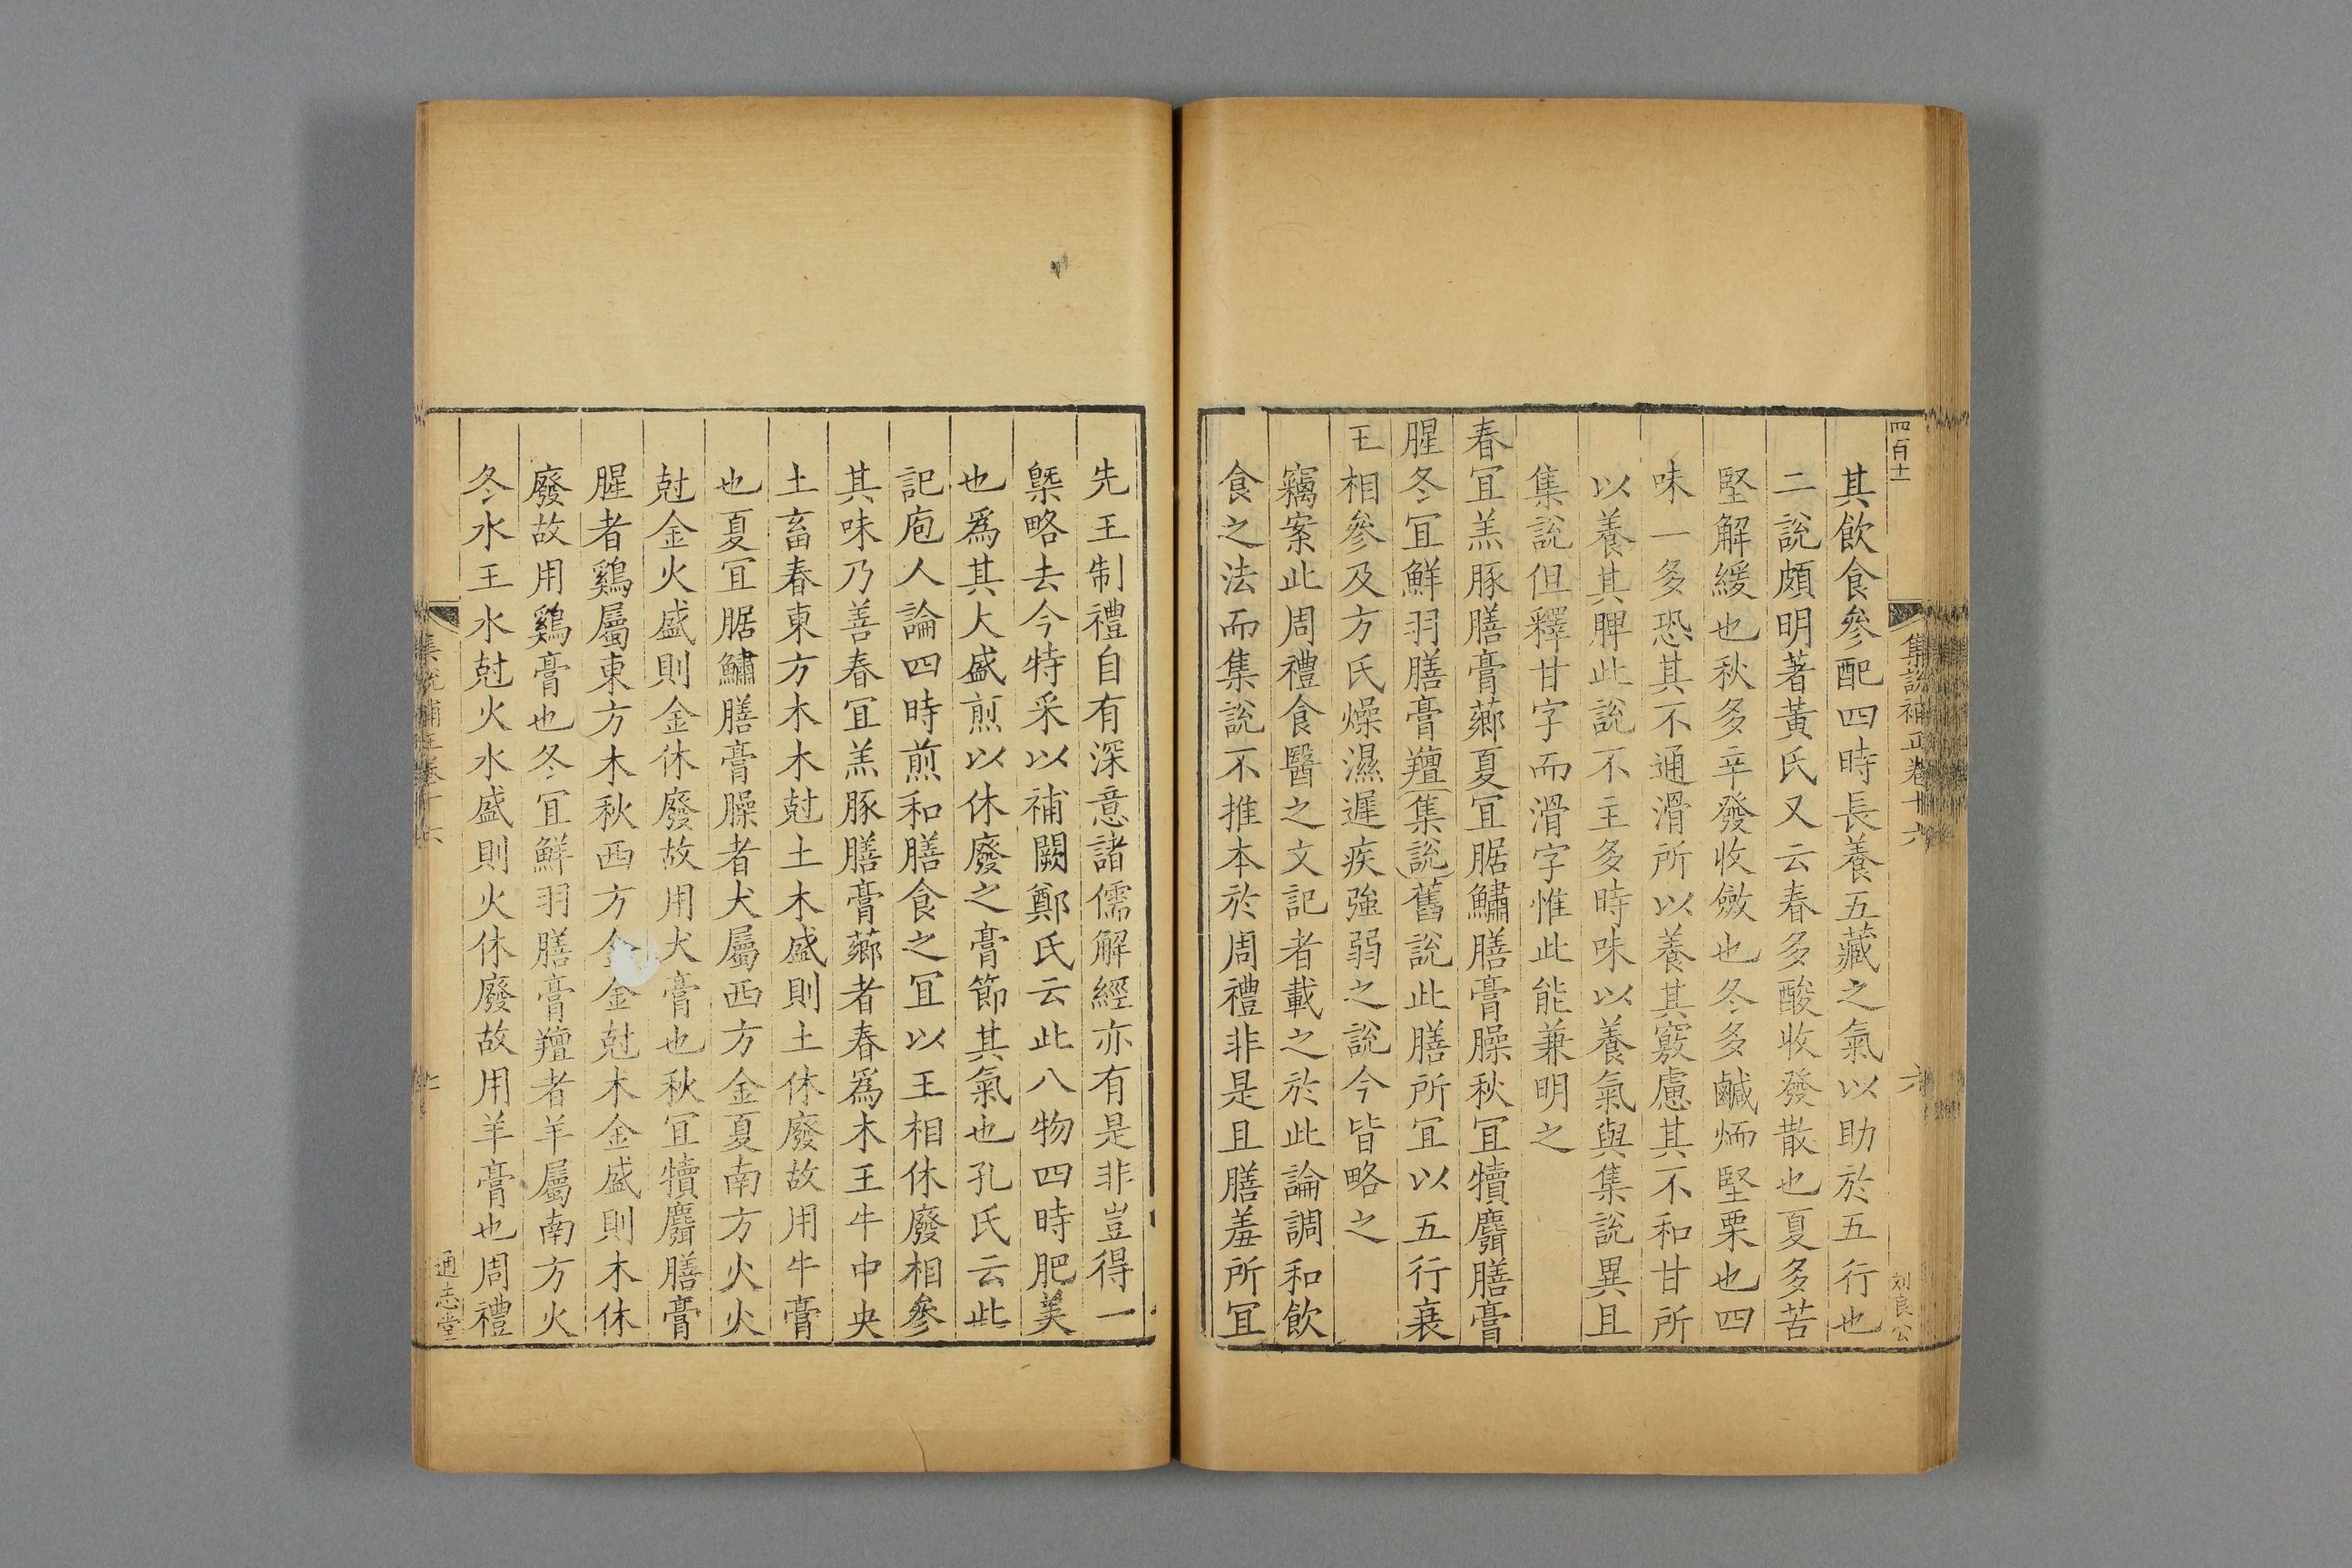 四百十一
集說補正卷十六
六
刘良公
其飲食參配四時長養五藏之氣以助於五行也
二說頗明著黃氏又云春多酸收發散也夏多苦
堅解緩也秋多辛發收斂也冬多鹹㶨堅栗也四
味一多恐其不通滑所以養其竅慮其不和甘所
以養其脾此說不主多時味以養氣與集說異且
集說但釋甘字而滑字惟此能兼明之
春宜羔豚膳膏薌夏宜腒鱐膳膏臊秋宜犢麛膳膏
腥冬宜鮮羽膳膏羶集說舊說此膳所宜以五行衰
王相參及方氏燥濕遲疾強弱之說今皆略之
竊案此周禮食醫之文記者載之於此論調和飲
食之法而集說不推本於周禮非是且膳羞所宜
先王制禮自有深意諸儒解經亦有是非豈得一
槩略去今特采以補闕鄭氏云此八物四時肥美
也爲其大盛煎以休廢之膏節其氣也孔氏云此
記庖人論四時煎和膳食之宜以王相休廢相參
其味乃善春宜羔豚膳膏薌者春爲木王牛中央
土畜春東方木木尅土木盛則土休廢故用牛膏
也夏宜腒鱐膳膏臊者犬屬西方金夏南方火火
尅金火盛則金休廢故用犬膏也秋宜犢麛膳膏
腥者鷄屬東方木秋西方金金尅木金盛則木休
廢故用鷄膏也冬宜鮮羽膳膏羶者羊屬南方火
冬水王水尅火水盛則火休廢故用羊膏也周禮
集說補正卷十六
通志堂